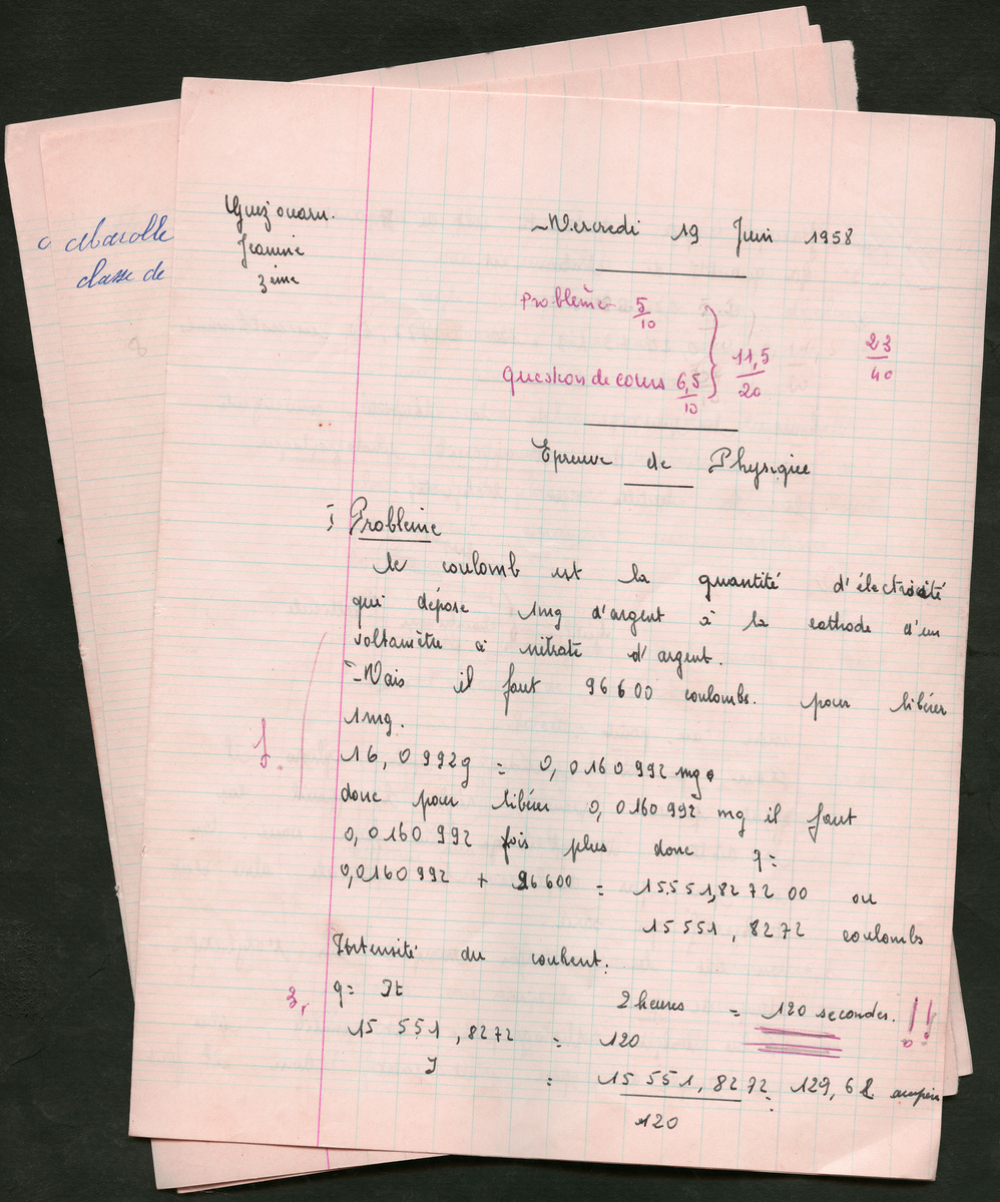 Jeannine
3ème
Mercredi 19 Juin 1958
Problème 5/10
Question de cours 6,5/10
11,5/20
23/40
Epreuve de Physique
I Problème
le coulomb est la quantité d'électricité
qui dépose 1mg d'argent à la cathode d'un
voltamètre à nitrate d'argent.
Mais il faut 96600 coulombs. pour libérer
1mg.
1
16,0992g = 0,0160992 mg.
donc pour libérer 0,0160992 mg il faut
0,0160992 fois plus donc q =
0,0160992 + 96600 = 15.551,827200 ou
15 551,8272 coulombs
Intensité du courent.
3,
q = It 2 heures = 120 secondes. !!
15 551,8272 = 120
I = 15 551,8272 = 129,68 ampère
120
c Marolle
classe de